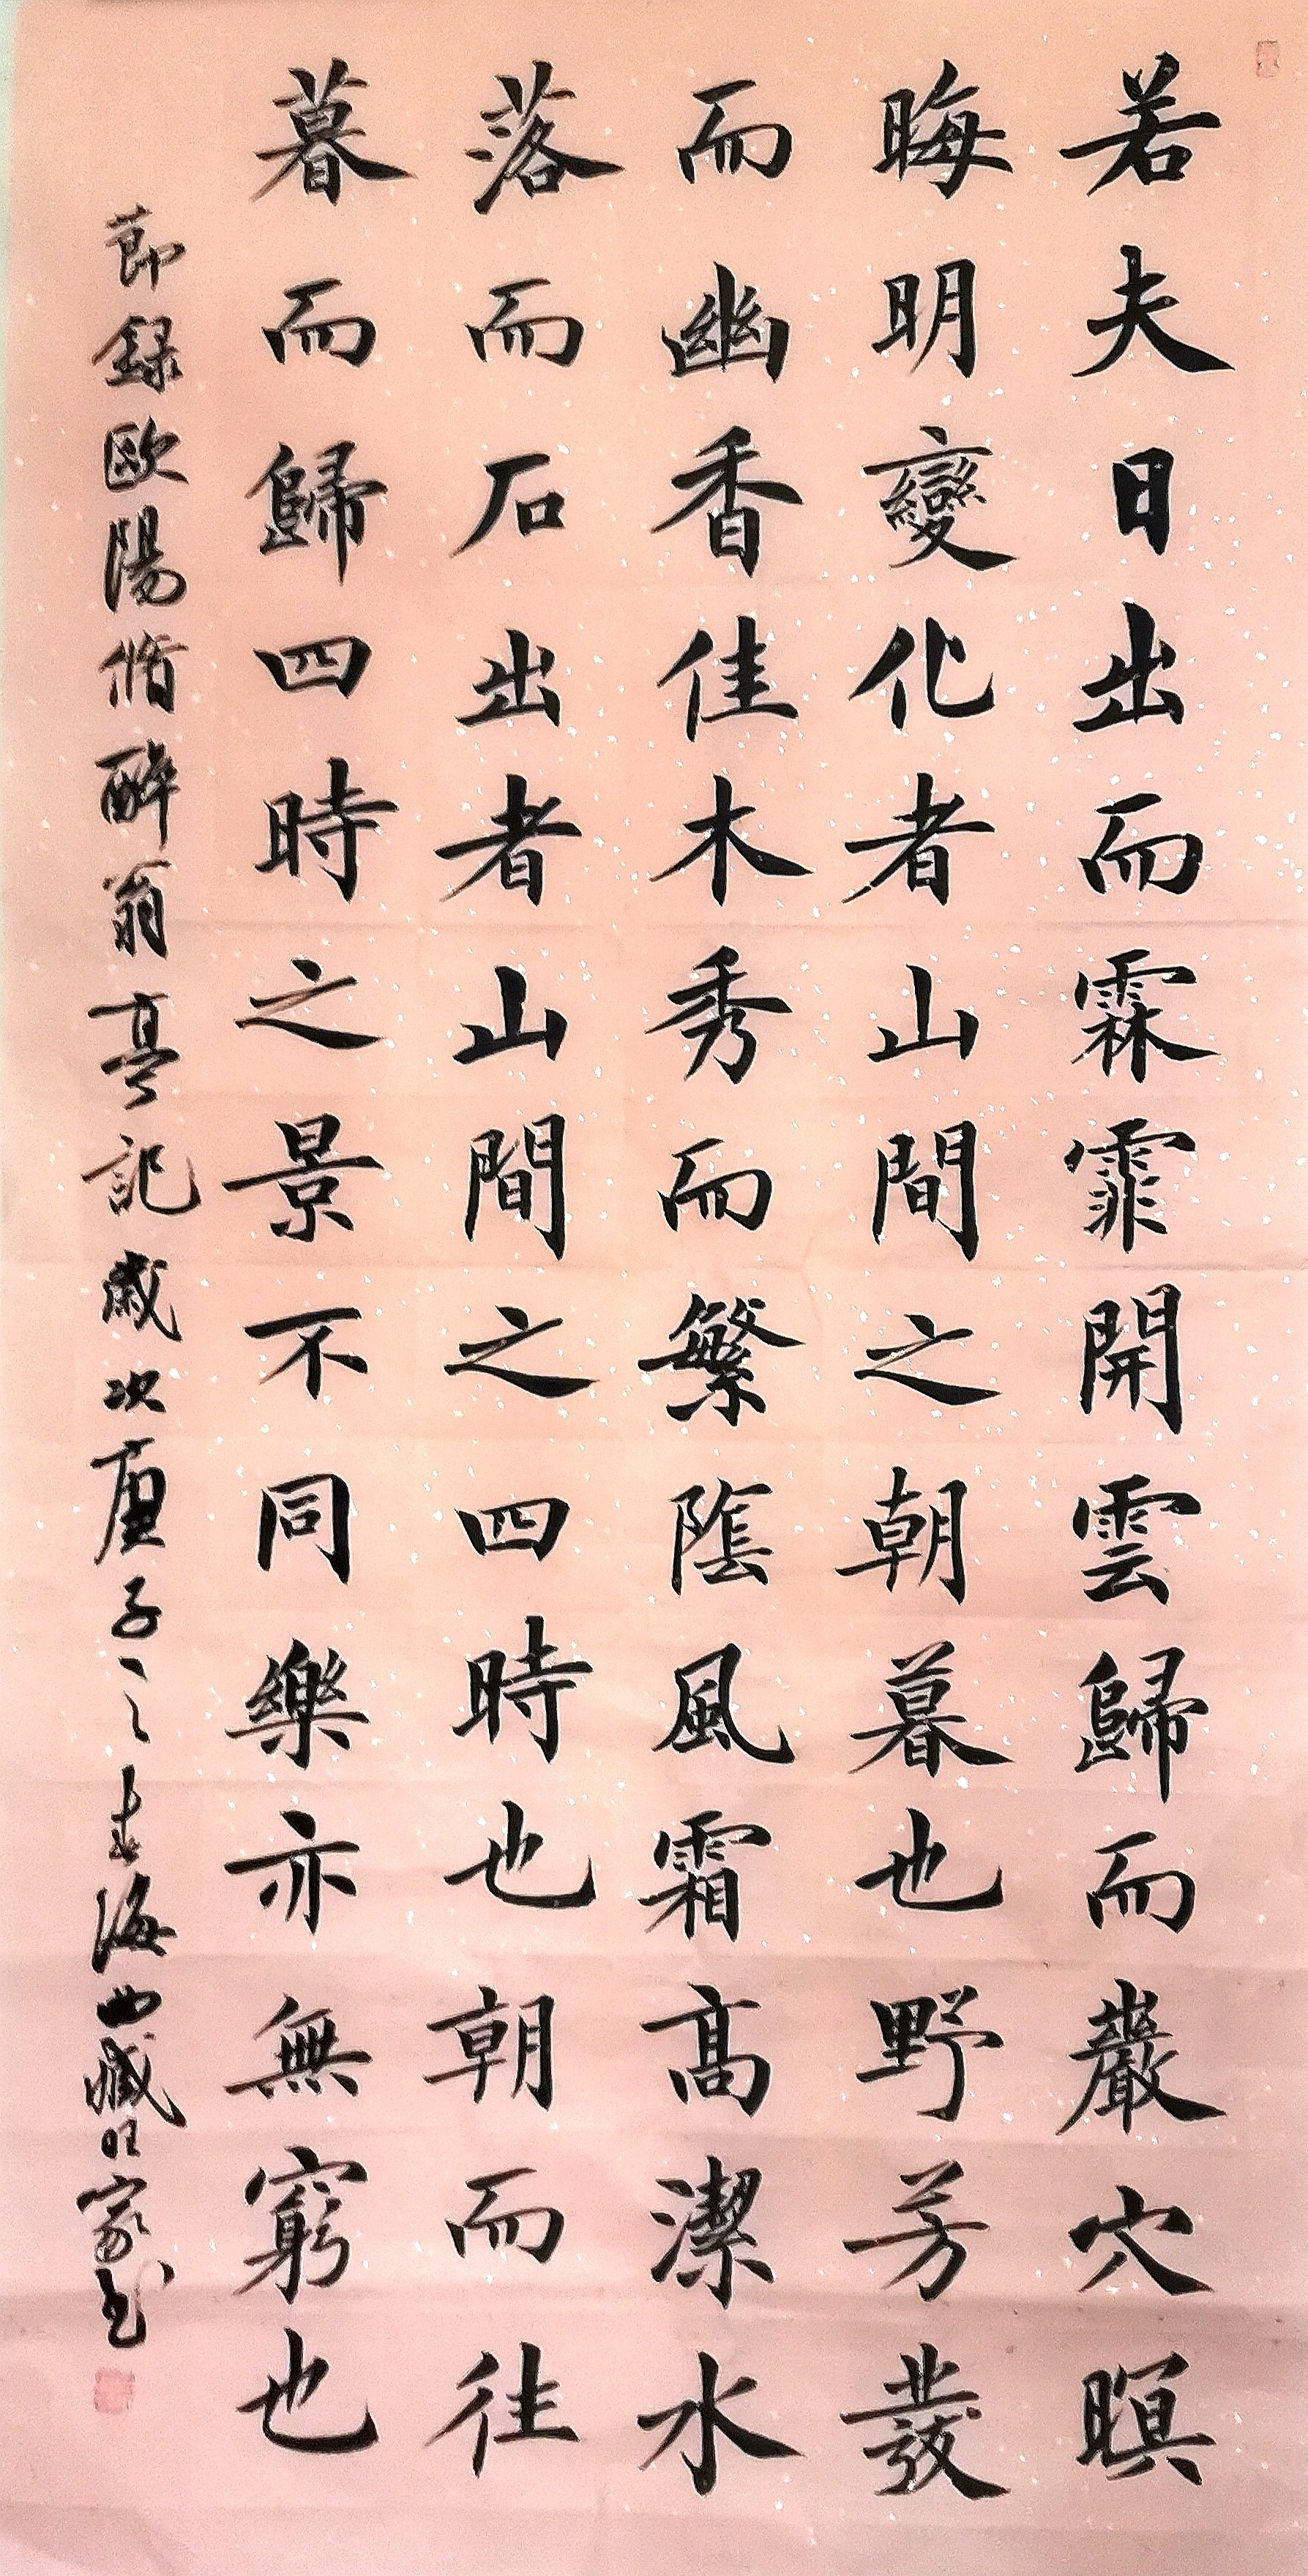 若夫日出而霖霏開雲歸而巖穴暝
晦明變化者山間之朝暮也野芳發
而幽香佳木秀而繁陰風霜髙潔水
落而石出者山間之四時也朝而往
暮而歸四時之景不同樂亦無窮也
節録欧陽脩醉翁亭記歲次庚子之春海曲臧旺家书